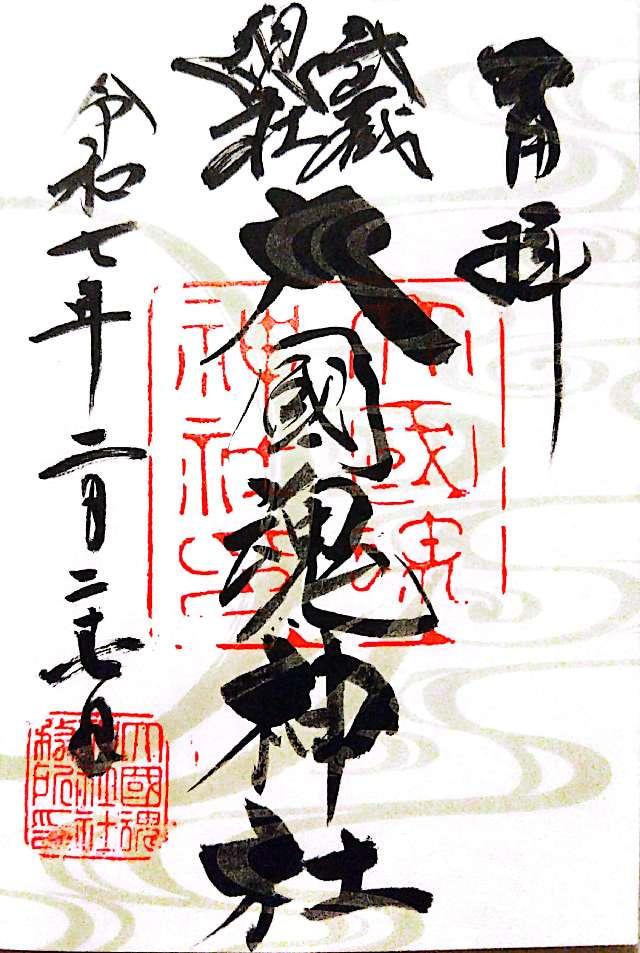 奉拝
武蔵
總社
大國魂神社
令和七年二月二十七日
大國魂
神社印
大國魂
神社社
務所印